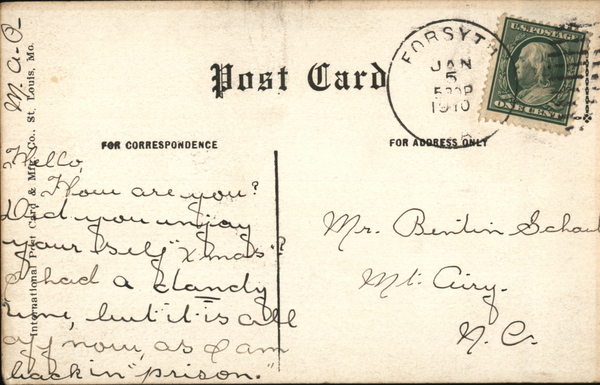 M. A. O.
Post Card
FORSYTH
JAN
5
1910
U.S. POSTAGE
ONE CENT
FOR CORRESPONDENCE
FOR ADDRESS ONLY
International Post Card & Mfg. Co., St. Louis, Mo.
Hello,
How are you?
Did you injoy
your self "Xmas"?
I had a dandy
time, but it is all
off now, as I am
back in "prison."
Mr. Bentin Schaub
Mt. Airy.
N. C.